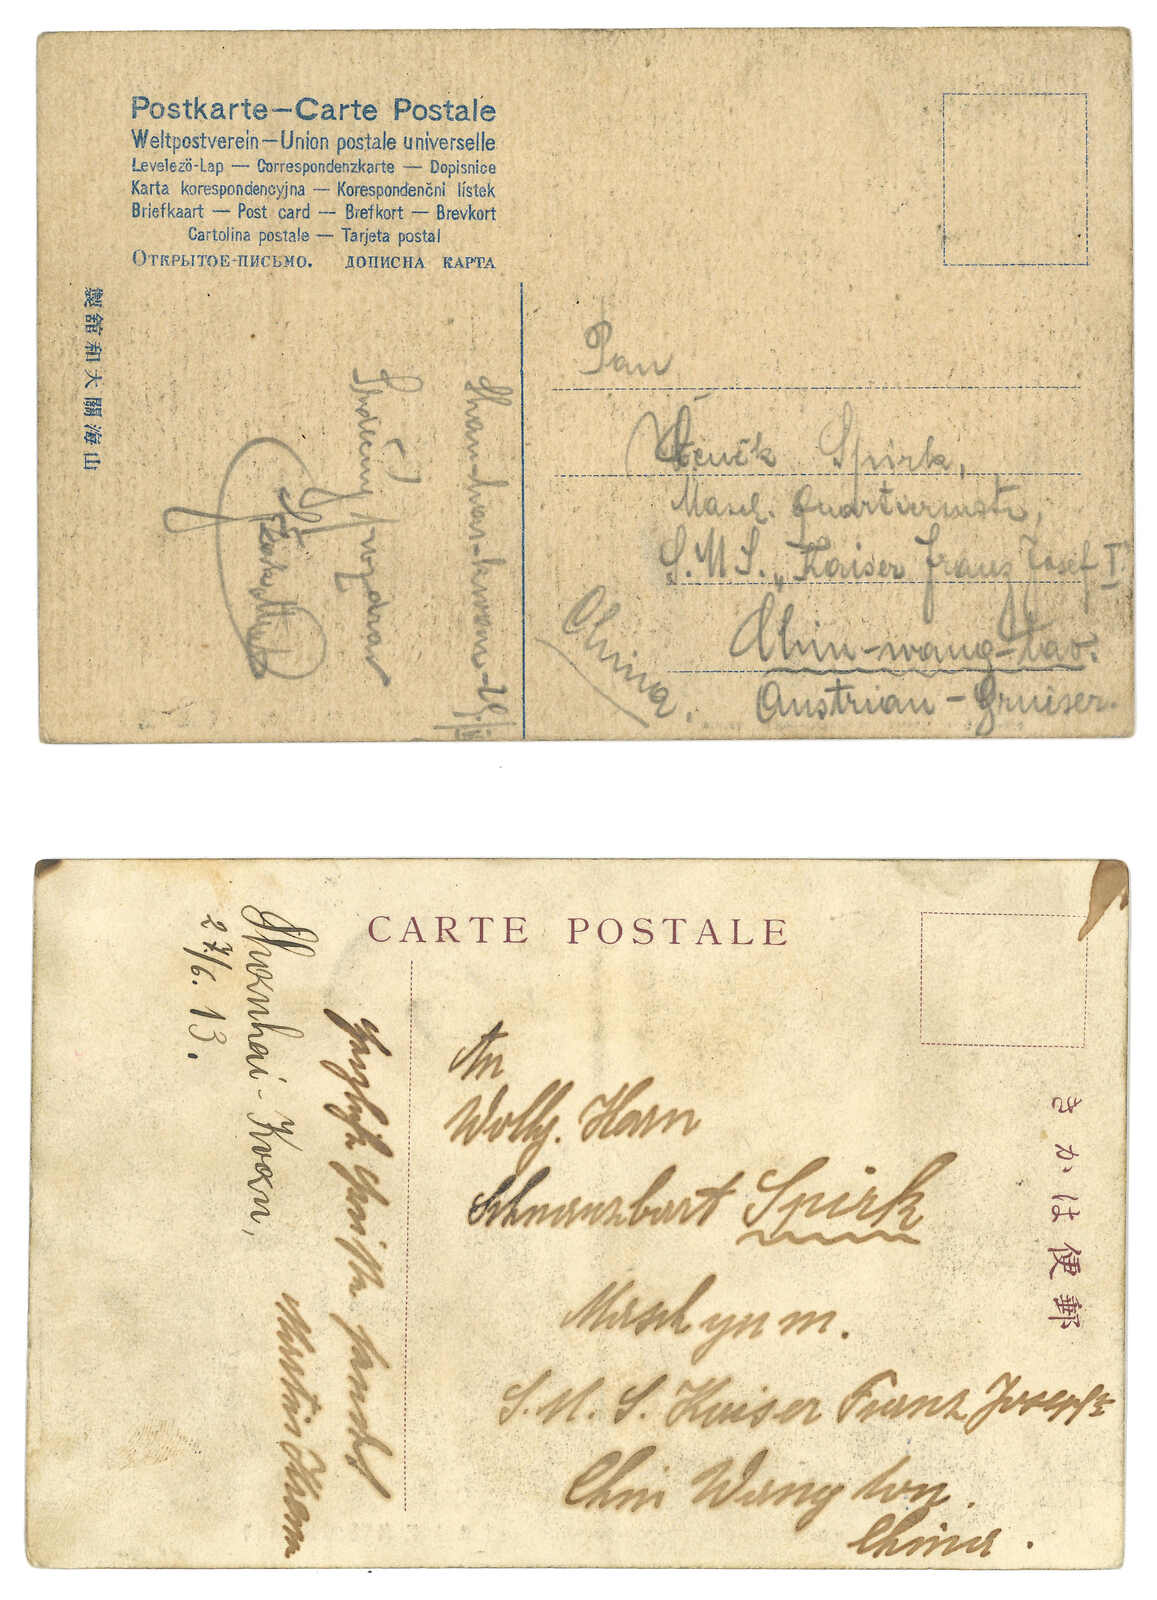 Postkarte—Carte Postale
Weltpostverein—Union postale universelle
Levelező-Lap — Correspondenzkarte — Dopisnice
Karta korespondencyjna — Korespondenční lístek
Briefkaart — Post card — Brefkort — Brevkort
Cartolina postale — Tarjeta postal
Открытое-письмо. дописна карта
山海關大和舘製
Shan-hai-kwan
Srdečný pozdrav
Pan
Spirk,
Masch. Quartiermstr,
S.M.S. „Kaiser Franz Josef I"
Chin-wang-tao.
China.
Austrian-Cruiser.
CARTE POSTALE
郵便はかき
Shanhai-Kwan,
27/6. 13.
An
Wolly. Horn
Schnauzbart Spirk
S. M. S. Kaiser Franz Joseph
Chin Wang tou.
China.